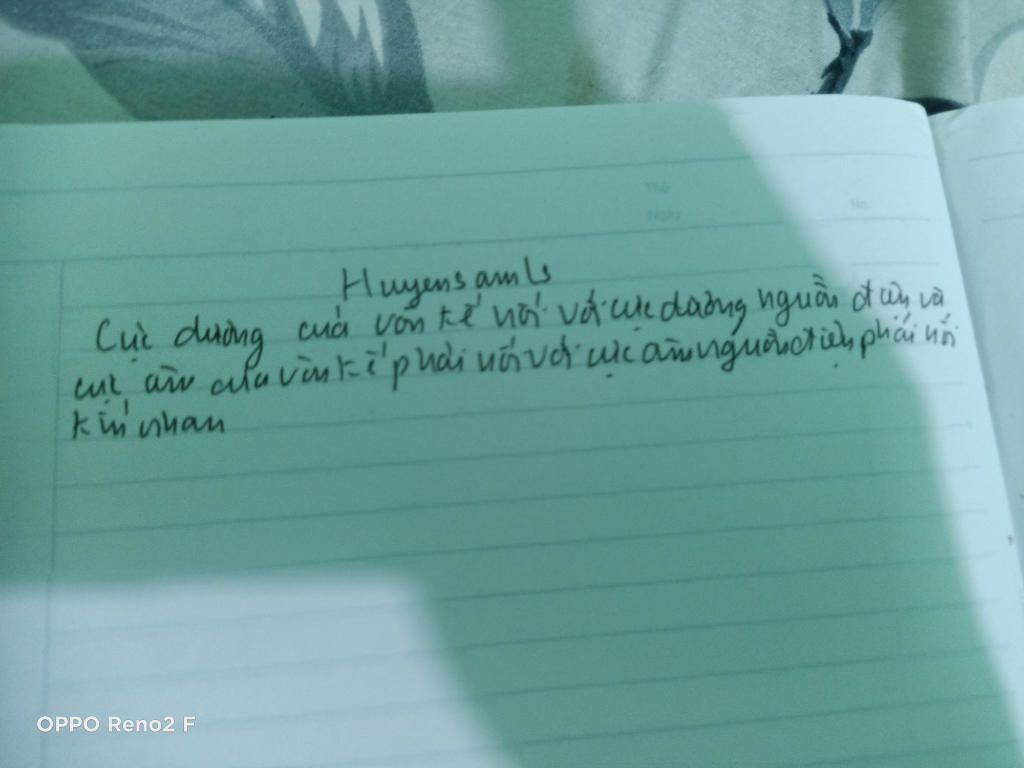 Thứ
Ngày
No.
Huyensamls
Cực dương của vôn kế nối với cực dương nguồn điện và
cực âm của vôn kế phải nối với cực âm nguồn điện phải nối
kín nhau
OPPO Reno2 F